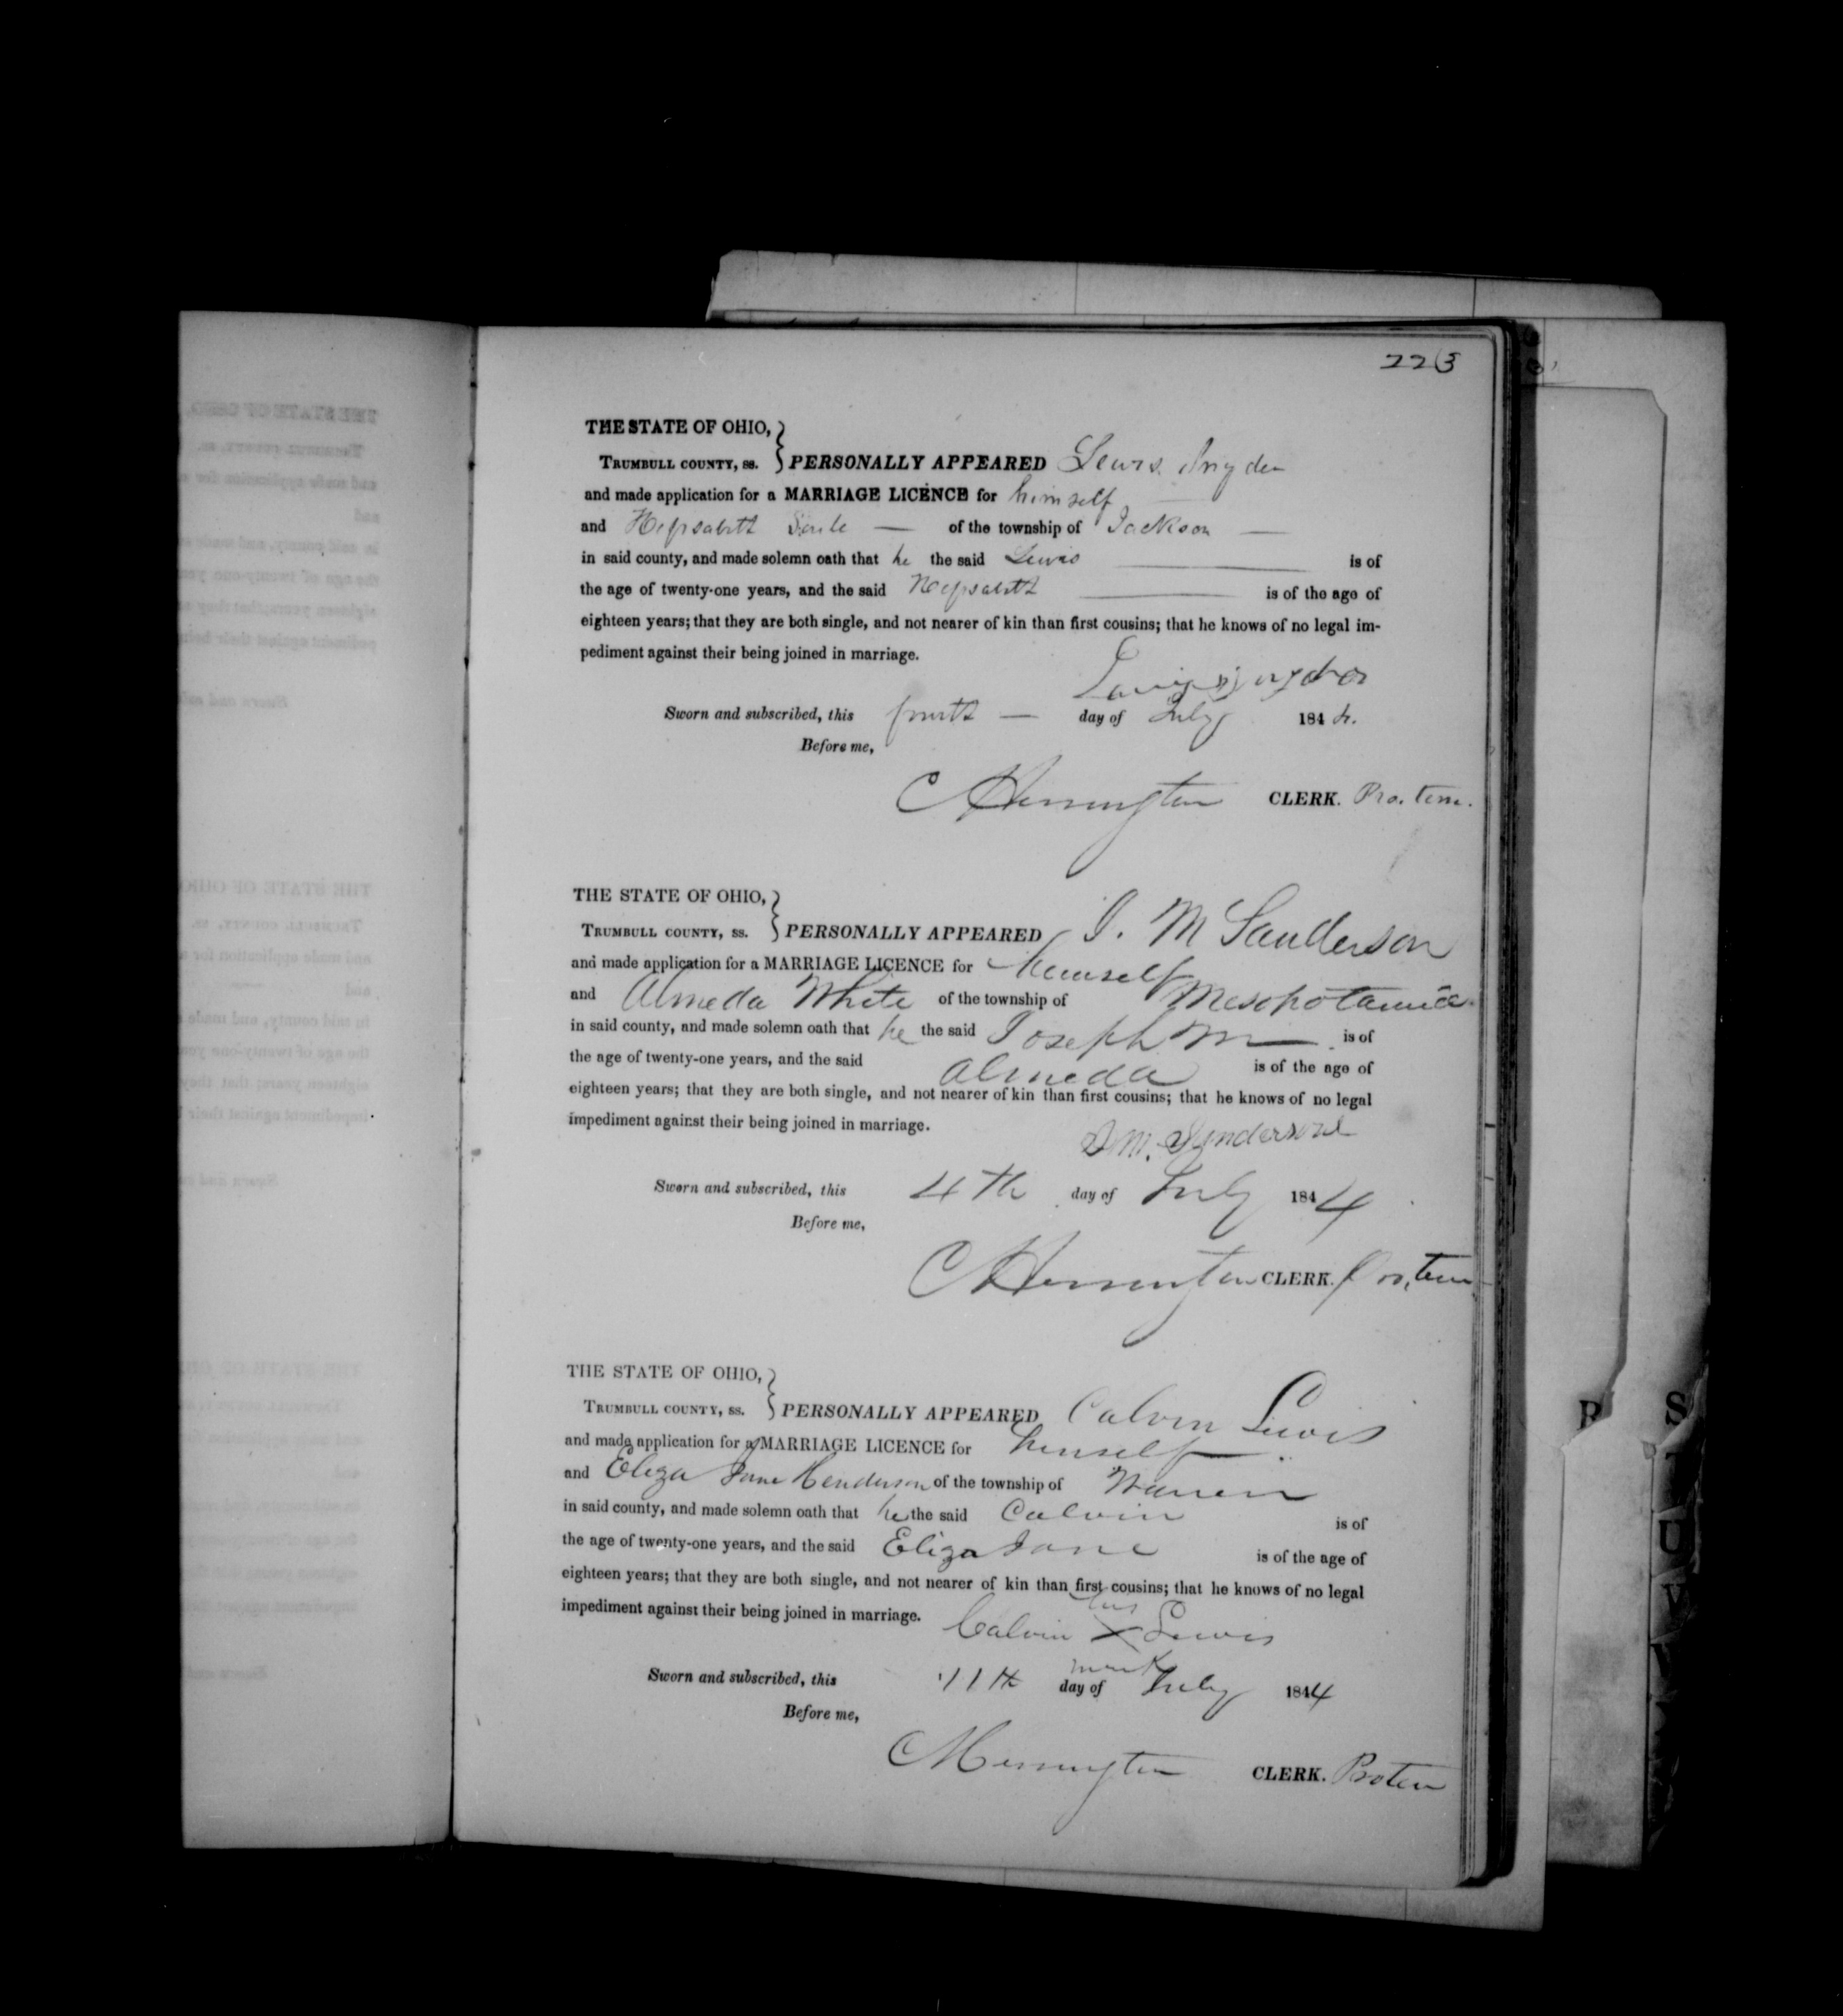 223
THE STATE OF OHIO,
TRUMBULL COUNTY, ss. } PERSONALLY APPEARED Lewis Snyder
and made application for a MARRIAGE LICENCE for himself
and Hepsabeth Soule — of the township of Jackson —
in said county, and made solemn oath that he the said Lewis is of
the age of twenty-one years, and the said Hepsabeth is of the age of
eighteen years; that they are both single, and not nearer of kin than first cousins; that he knows of no legal im-
pediment against their being joined in marriage.
Sworn and subscribed, this fourth — day of July 1844.
Before me,
CLERK. Pro. tem.
THE STATE OF OHIO,
TRUMBULL COUNTY, ss. } PERSONALLY APPEARED J. M Sanderson
and made application for a MARRIAGE LICENCE for himself
and Almeda White of the township of Mesopotamia
in said county, and made solemn oath that he the said Joseph M — is of
the age of twenty-one years, and the said Almeda is of the age of
eighteen years; that they are both single, and not nearer of kin than first cousins; that he knows of no legal
impediment against their being joined in marriage.
J M. Sanderson
Sworn and subscribed, this 4th day of July 1844
Before me,
CLERK. Pro. tem
THE STATE OF OHIO,
TRUMBULL COUNTY, ss. } PERSONALLY APPEARED Calvin Lewis
and made application for a MARRIAGE LICENCE for himself
and Eliza Jane Henderson of the township of Warren
in said county, and made solemn oath that he the said Calvin is of
the age of twenty-one years, and the said Eliza Jane is of the age of
eighteen years; that they are both single, and not nearer of kin than first cousins; that he knows of no legal
impediment against their being joined in marriage.
his
Calvin X Lewis
mark
Sworn and subscribed, this 11th day of July 1844
Before me,
CLERK. Protem
R
S
U
V